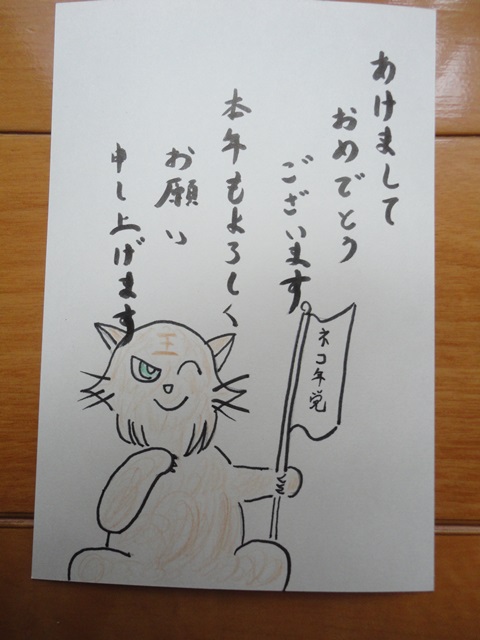 あけまして
おめでとう
ございます
本年もよろしく
お願い
申し上げます
ネコ年党
王